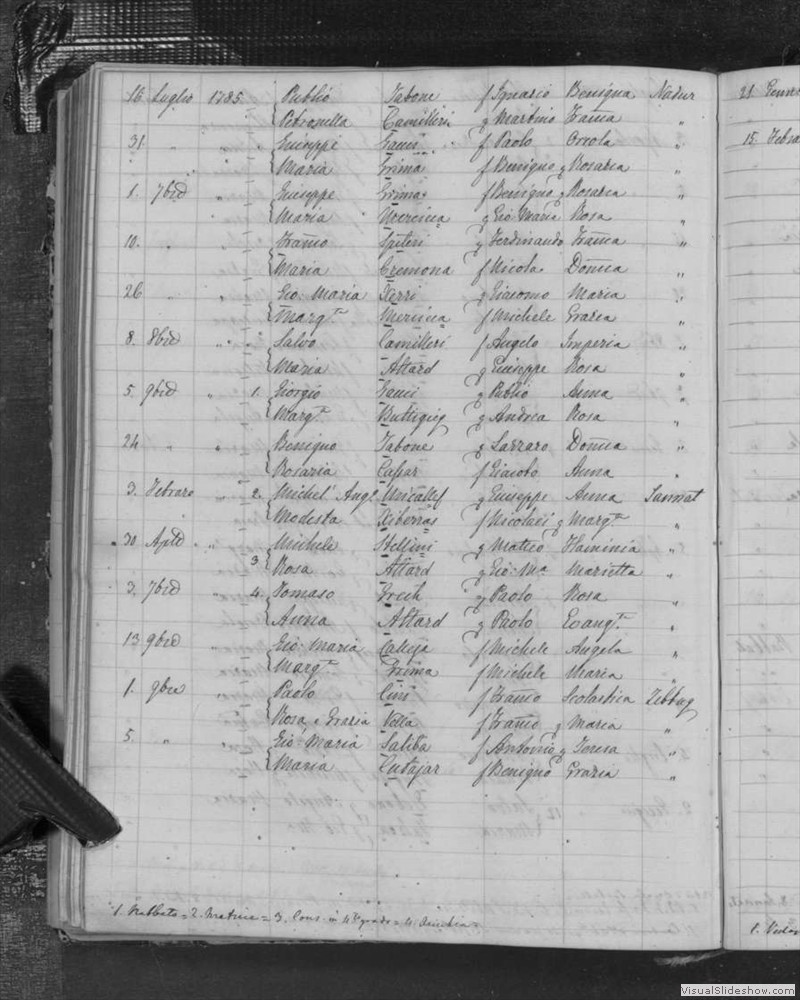 16 Luglio 1785 Publio Tabone f Ignazio Benigna Nadur 21 Genn
Petronella Camilleri q Martino Franca "
31. " " Giuseppe f Paolo Oreola " 15 Febra
Maria Grima f Benigno q Rosaria "
1. 7bre " Giuseppe Grima f Benigno q Rosaria "
" Maria q Gio Maria Rosa "
10. " " Spiteri q Ferdinando Franca "
Maria Cremona f Nicola Domca "
26 " " Gio Maria Xerri q Giacomo Maria "
Margta f Michele Grazia "
8. 8bre " " Salvo Camilleri f Angelo Imperia "
Maria Attard q Giuseppe Rosa "
5. 9bre " 1. Giorgio q Publio Anna "
Margta Buttigieg q Andrea Rosa "
24 " " Benigno Tabone q Lazzaro Domca "
Rosaria f Giacobo Anna "
3. Febraro " 2. Michel' Angl Micallef q Giuseppe Anna Sannat
Modesta Xiberras f Nicolaci q Margta "
30 Aple " Michele Stellini q Matteo Flaminia "
3 Rosa Attard q Gio Ma Marietta "
3. 7bre " 4. Tomaso Grech q Paolo Rosa "
Anna Attard q Paolo Evangta "
13 9bre " Gio Maria Calleja f Michele Angela "
Margta Grima f Michele Maria "
1. 9bre " Paolo Cini f Franco Scolastica Zebbug
Rosa e Grazia Vella f Franco q Maria "
5. " " Gio Maria Saliba f Antonio q Teresa "
Maria Cutajar f Benigno Grazia "
1. Rabbato = 2. Matrice = 3. Cons. in 4to grado = 4.
VisualSlideshow.com